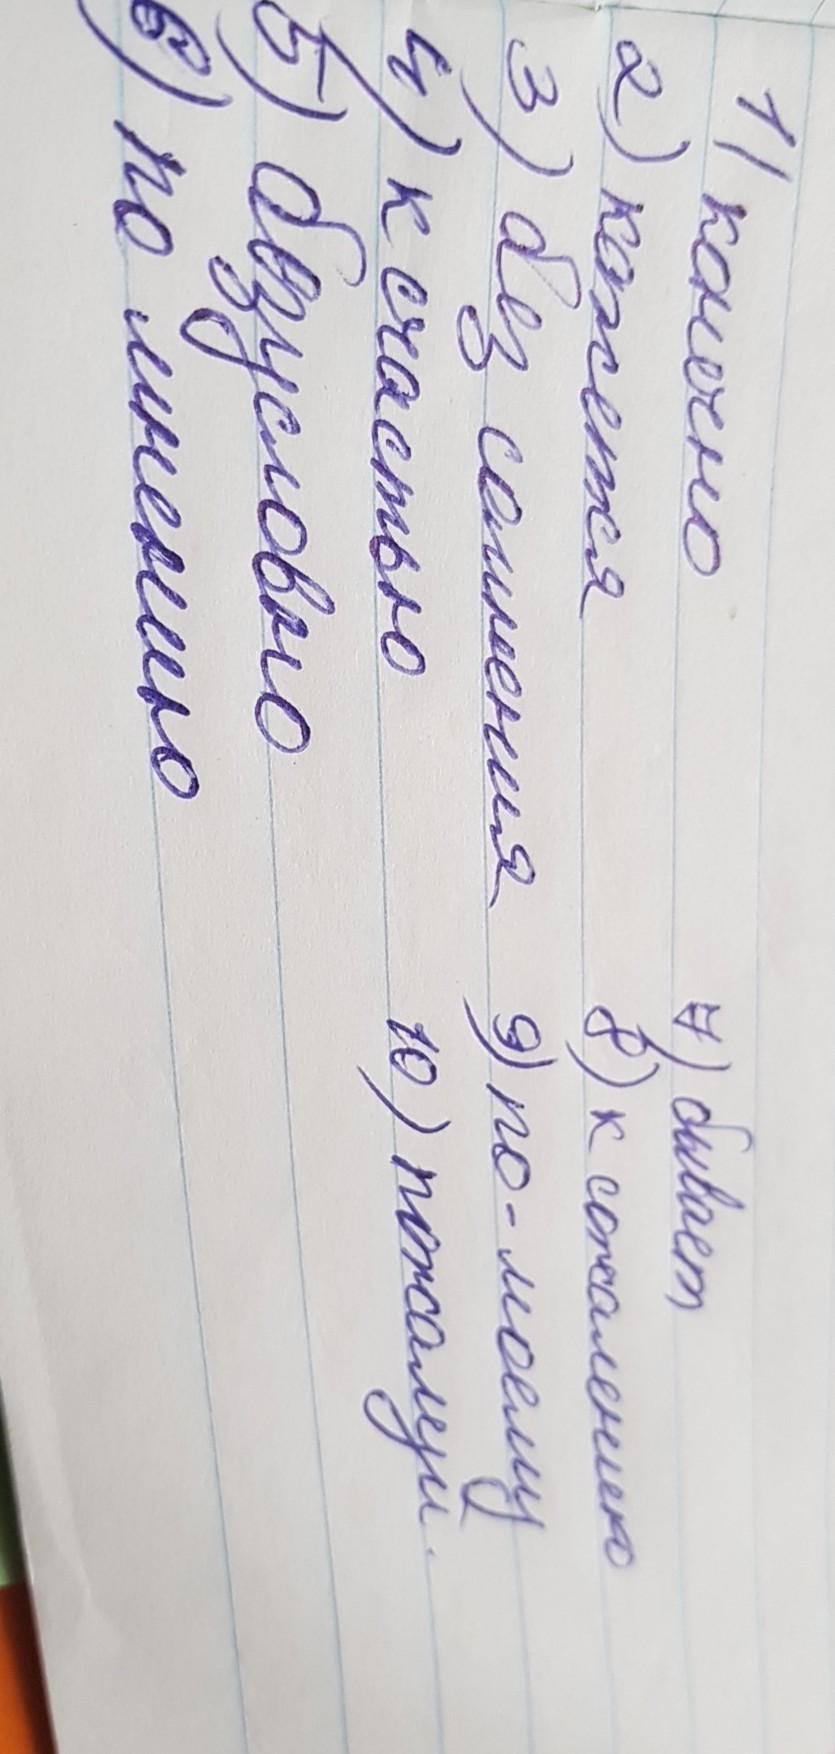 1) конечно
2) кажется
3) без сомнения
4) к счастью
5) безусловно
6) по мнению
7) бывает
8) к сожалению
9) по-моему
10) пожалуй.